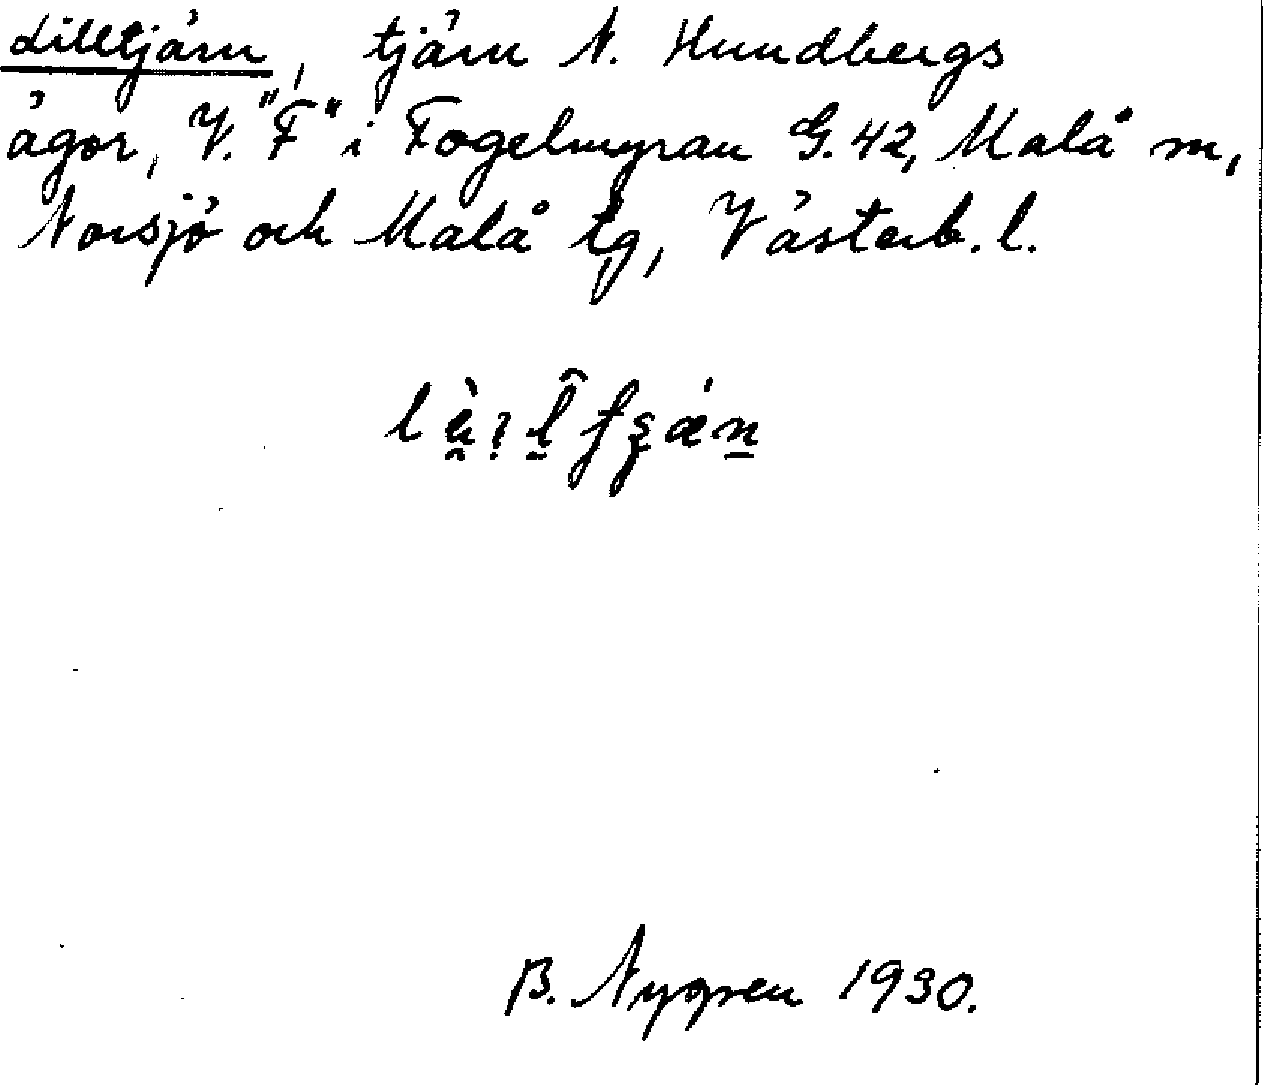 Lilltjärn, tjärn N. Hundbergs
ägor, V. "F" i Fogelmyran G. 42, Malå sn,
Norsjö och Malå tg, Västerb. l.
B. Nygren 1930.